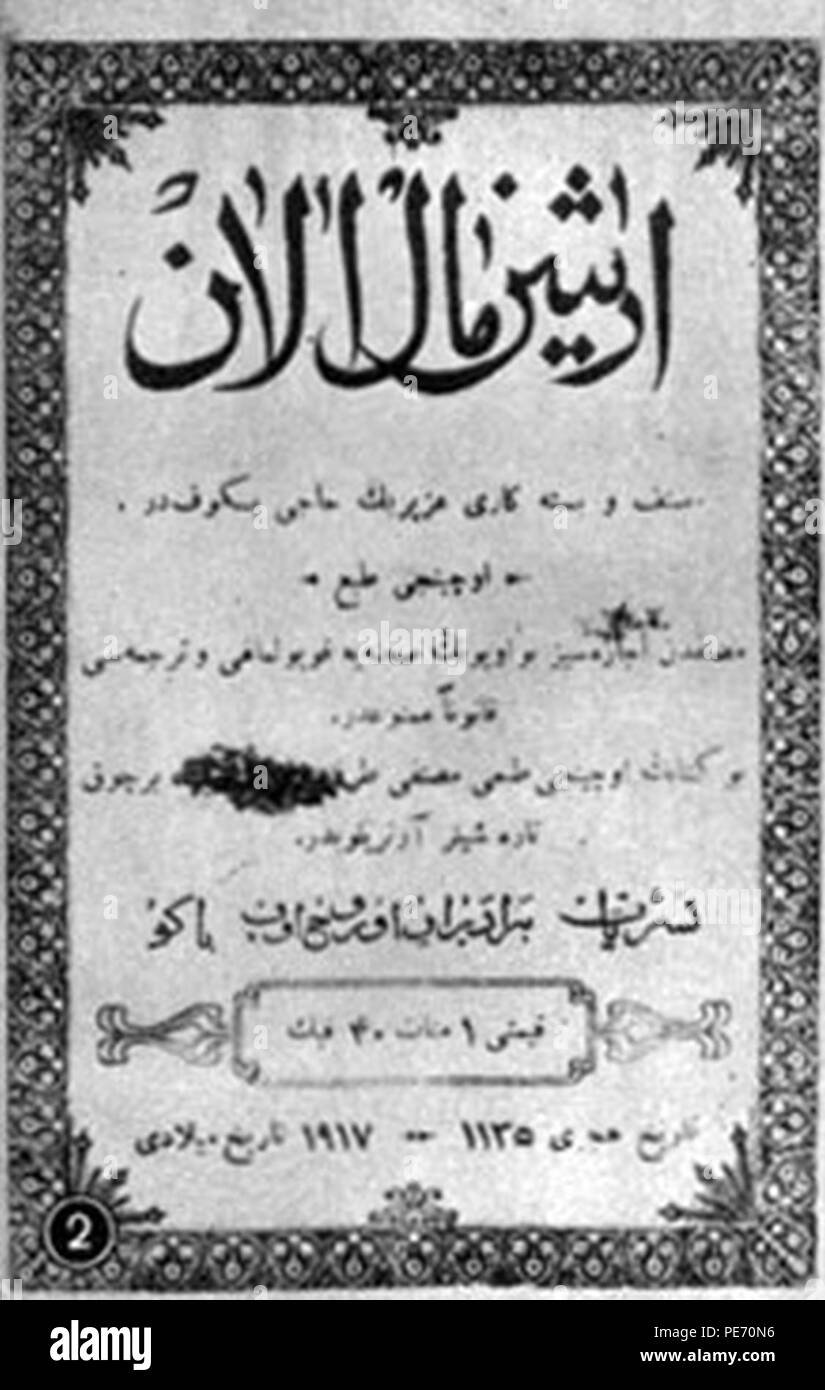 ارشین مال آلان
مصنف و بسته کاری عزیر بك حاجی بیكوف‌در .
اوچنجی طبع
مصنفدن اجازه‌سیز بو اویونك صحنه‌یه قویولماغی و ترجمه‌سی
قانوناً ممنوعدر.
بو كتابك اوچنجی طبعی مصنفی برچوق
تازه شیلر آرتریلوبدر.
نشریات برادران اوروجوف باكو
قیمتی ۱ منات ۴۰ قپك
تاریخ هجری ۱۱۳۵ -- ۱۹۱۷ تاریخ میلادی
2
alamy
PE70N6
www.alamy.com